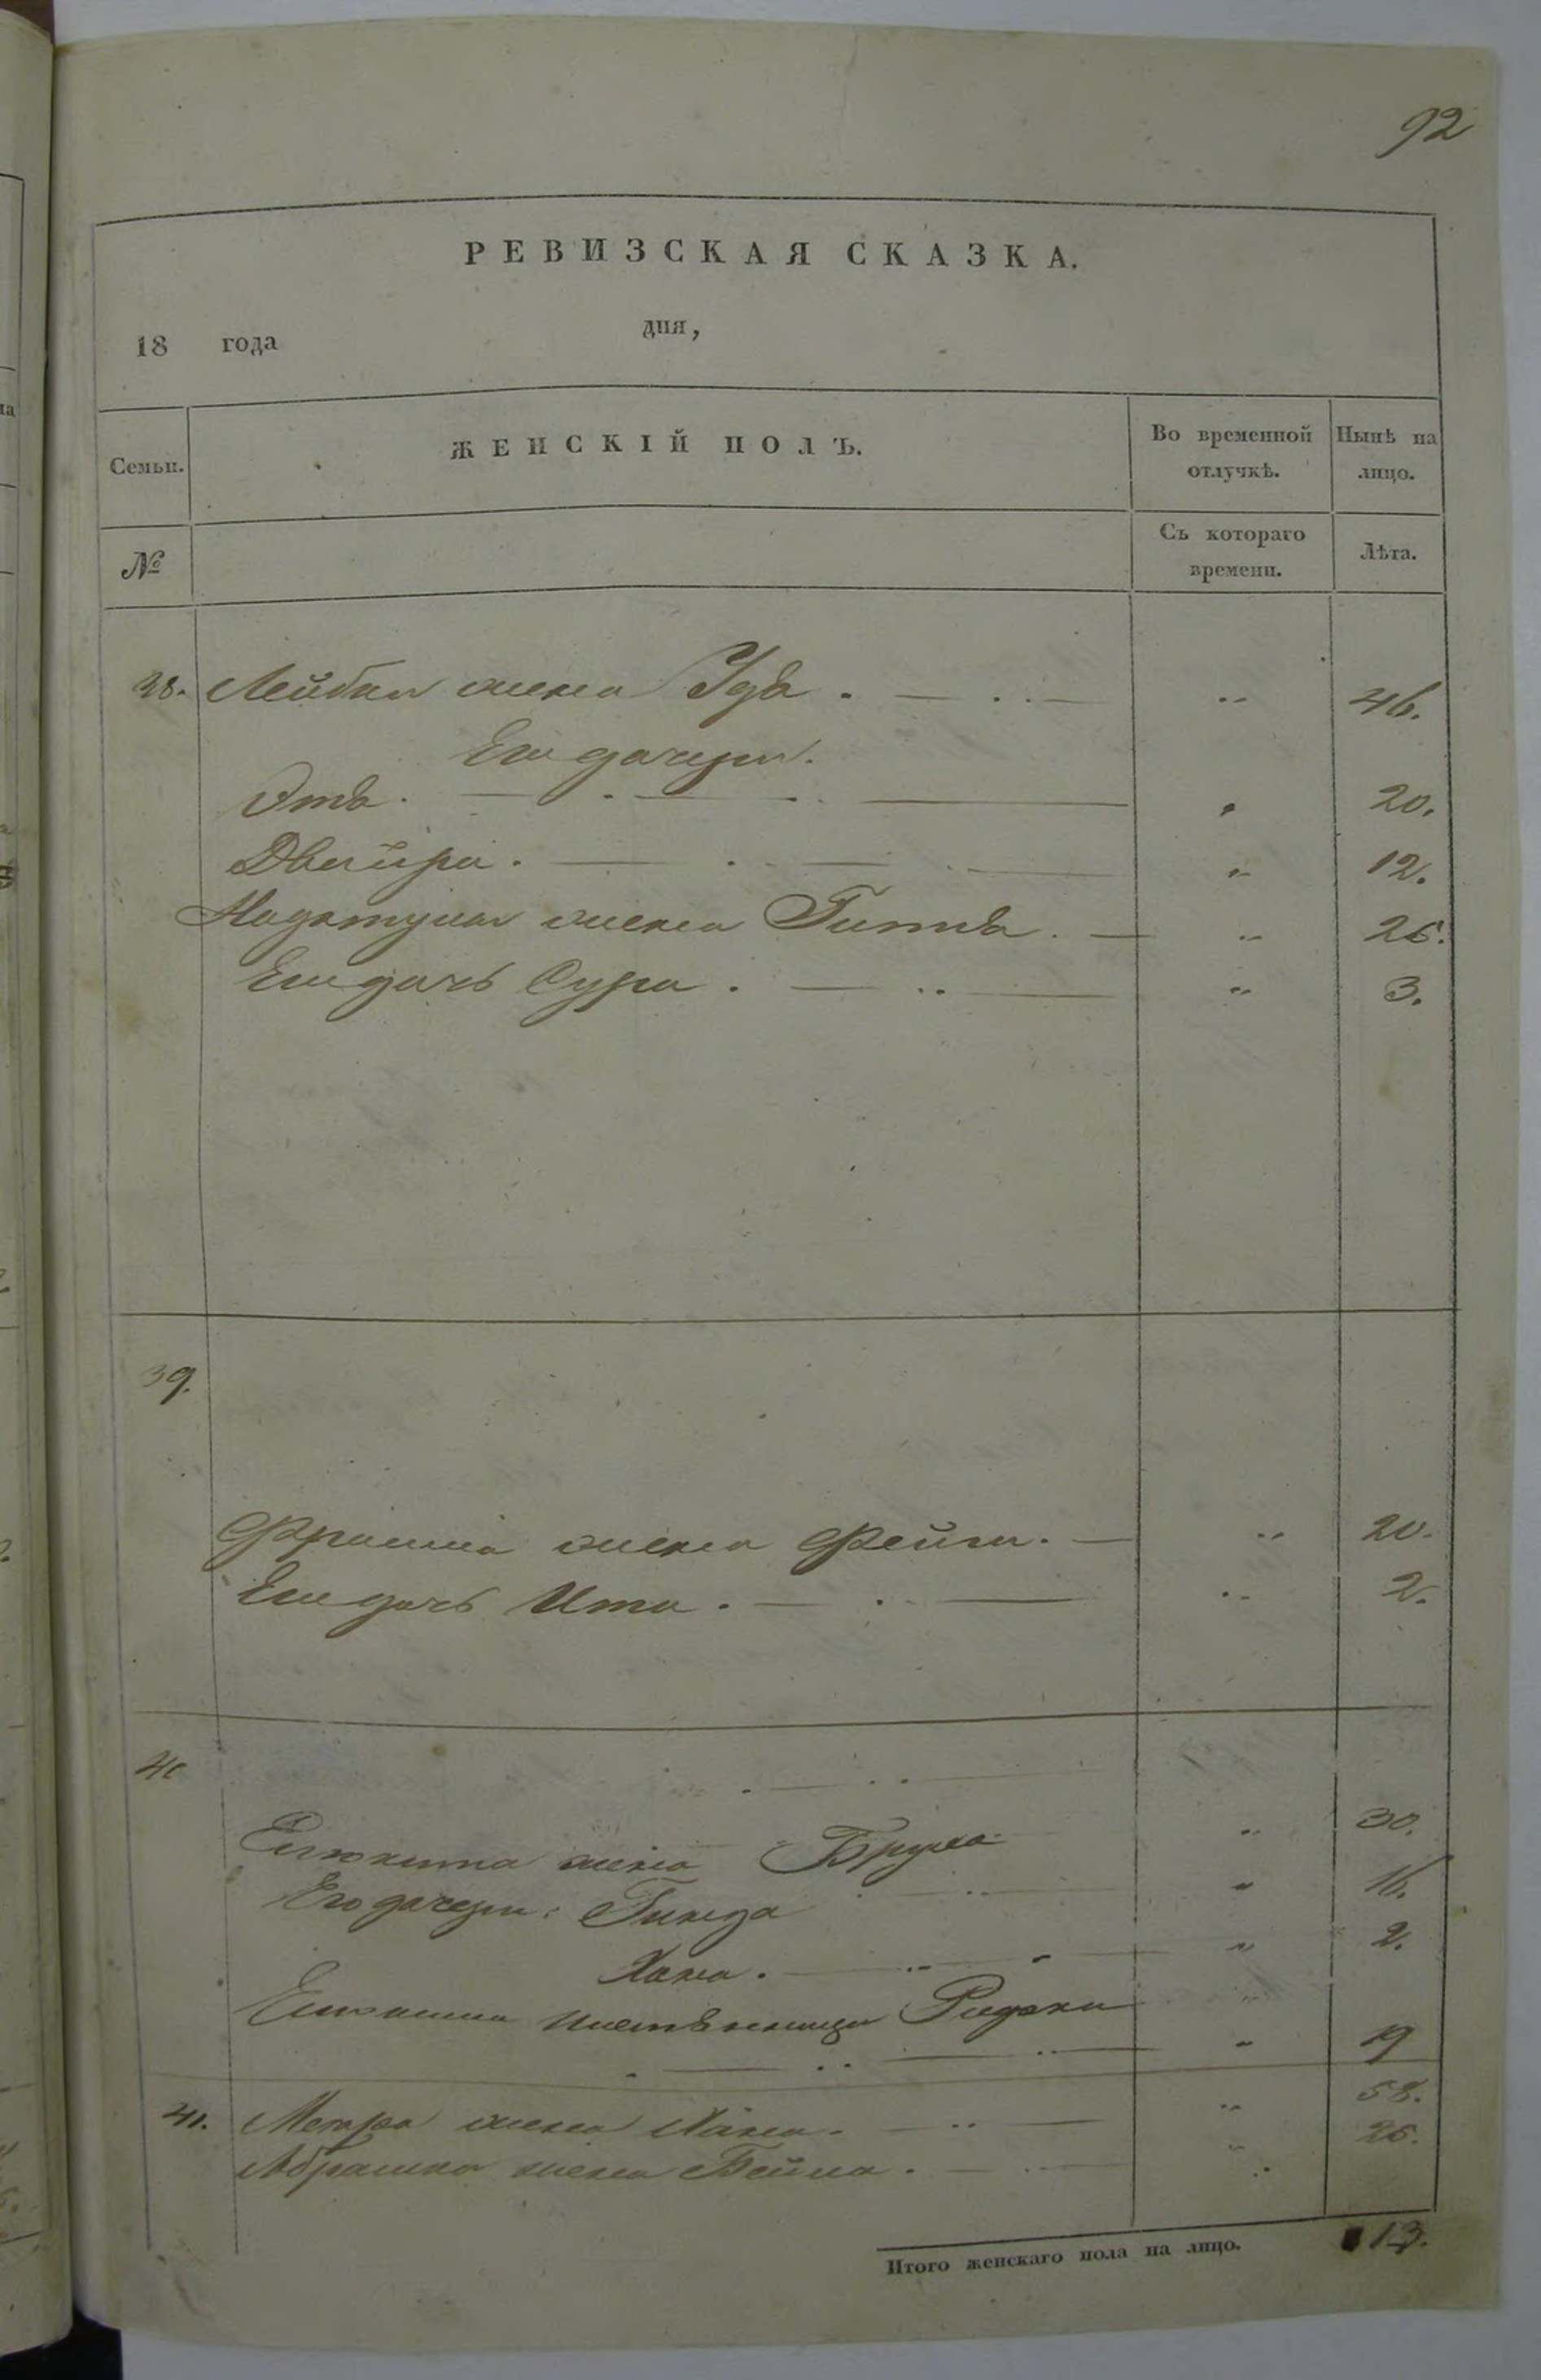 92
РЕВИЗСКАЯ СКАЗКА.
18 года дня,
Семьи. ЖЕНСКІЙ ПОЛЪ. Во временной отлучкѣ. Нынѣ на лицо.
№ Съ котораго времени. Лѣта.
38. Лейбы жена Идѣ. 46.
Его дочери.
Этѣ. 20.
Двейра. 12.
жена Гитѣ. 26.
Его дочь Сура. 3.
39.
жена Фейга. 20.
Его дочь Ита. 2.
40
жена Бруха 30.
Его дочери: Гинда 16.
Хана. 2.
19
41. жена Хана. 58.
Абрашка жена Бейла. 26.
Итого женскаго пола на лицо. 13.